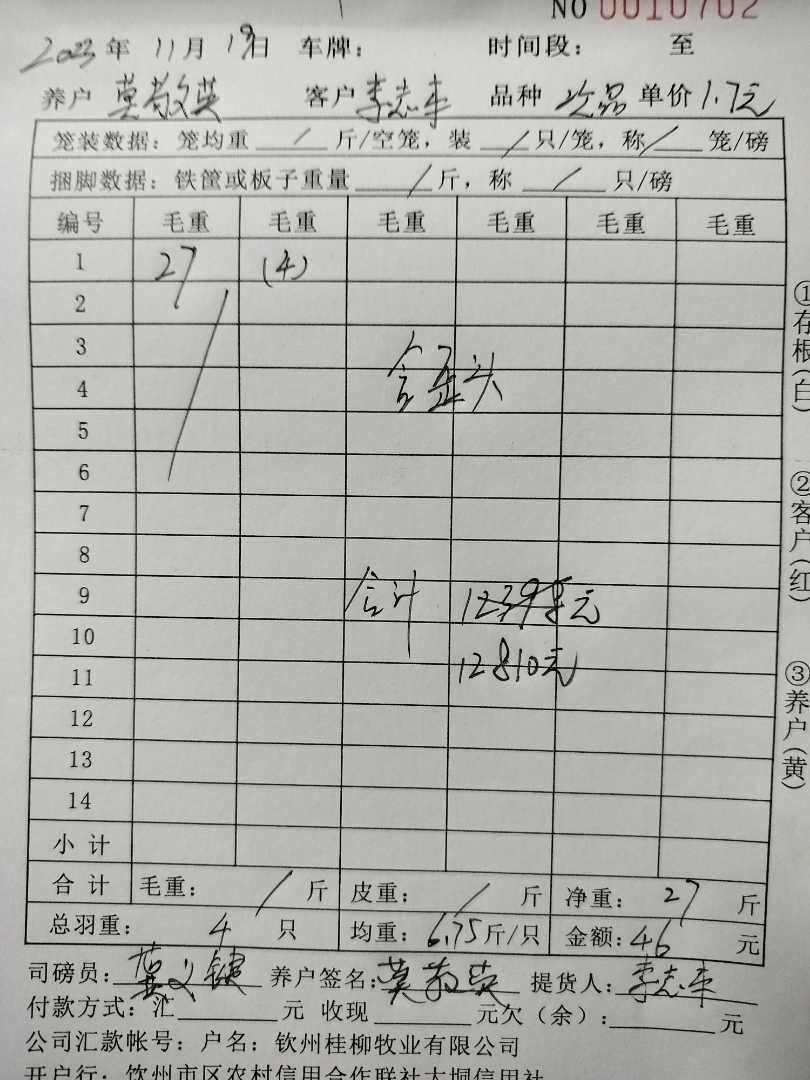 NO 0010702
2023年 11月 19日 车牌： 时间段： 至
养户 莫敬英 客户 李志平 品种 次品 单价 1.7元
笼装数据：笼均重 / 斤/空笼，装 / 只/笼，称 / 笼/磅
捆脚数据：铁筐或板子重量 / 斤，称 / 只/磅
编号 毛重 毛重 毛重 毛重 毛重 毛重
1 27 (4)
2
3
含歪头
4
5
6
7
8
9 合计 1239元
10
12810元
11
12
13
14
小计
合计 毛重： / 斤 皮重： / 斤 净重： 27 斤
总羽重： 4 只 均重：6.75斤/只 金额：46 元
司磅员： 养户签名：莫敬英 提货人：李志平
付款方式：汇 元 收现 元欠（余）： 元
公司汇款帐号：户名：钦州桂柳牧业有限公司
开户行：钦州市区农村信用合作联社大垌信用社
①存根(白)
②客户(红)
③养户(黄)